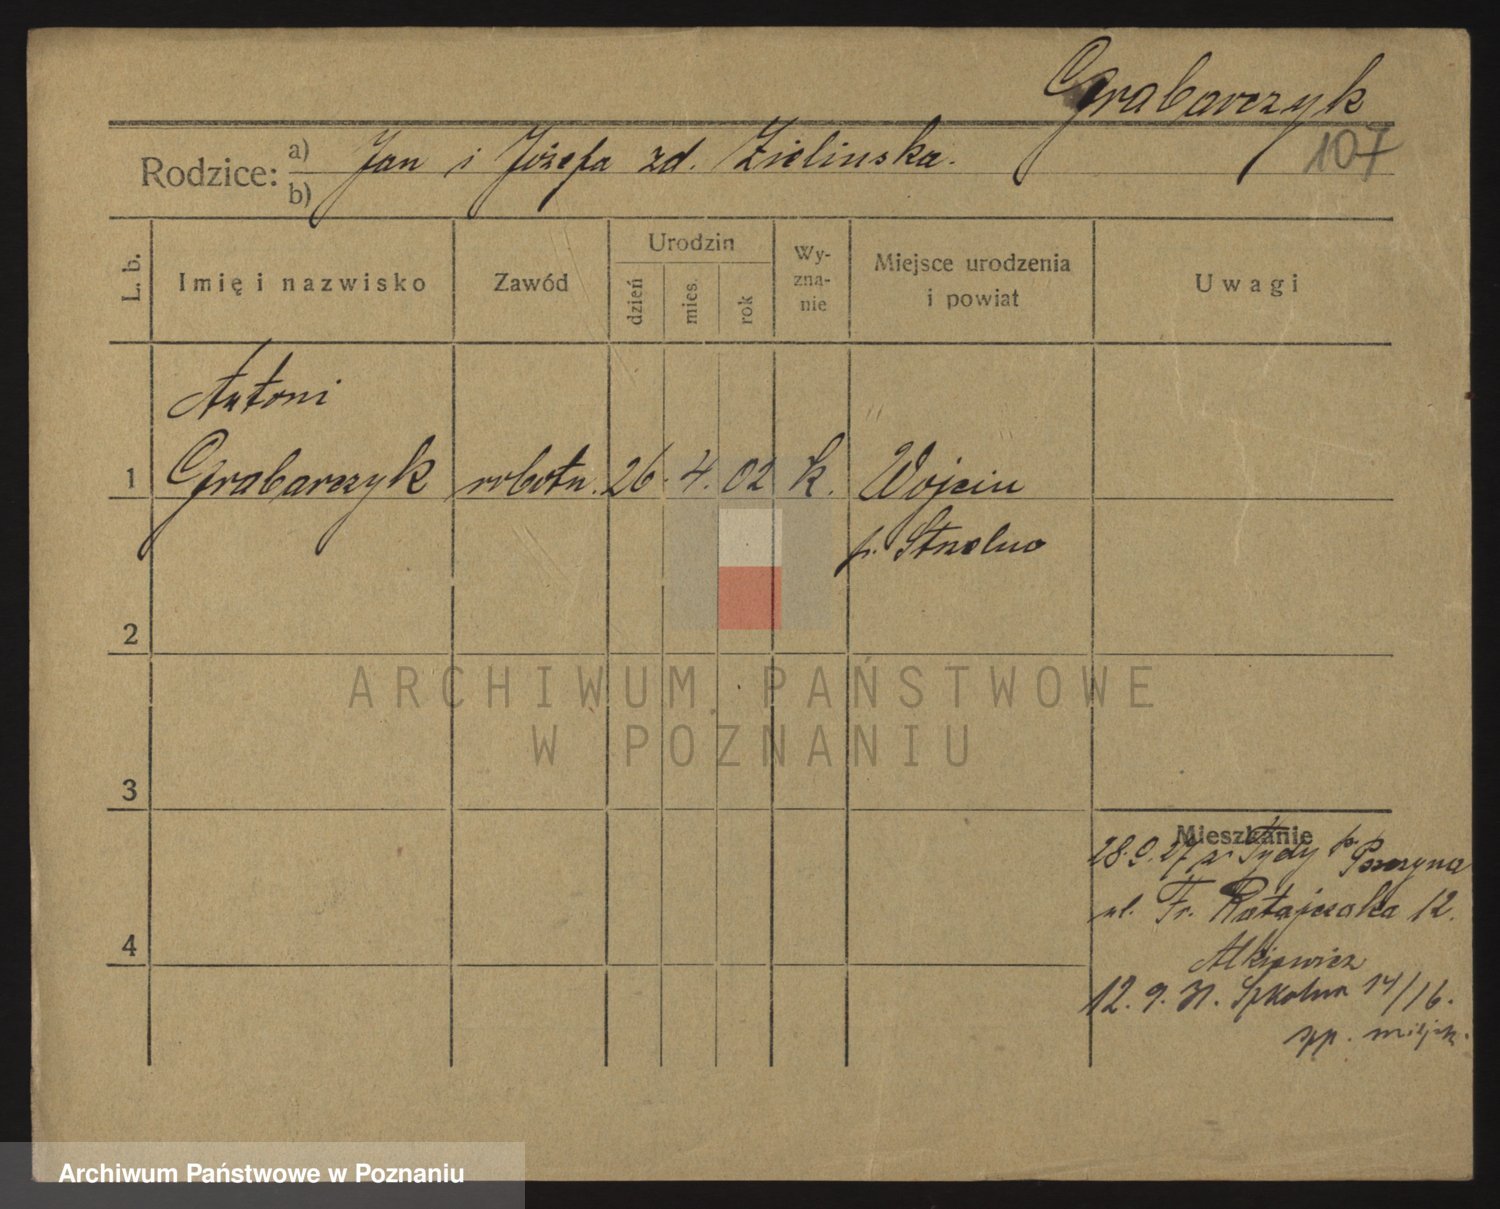 Grabarczyk
107
Rodzice: a) b) Jan i Józefa zd. Zielinska.
L. b.
Imię i nazwisko
Zawód
Urodzin
dzień
mies.
rok
Wy-
zna-
nie
Miejsce urodzenia
i powiat
Uwagi
Antoni
1 Grabarczyk robotn. 26. 4. 02 k. Wojcin
p. Strzelno
2
ARCHIWUM PAŃSTWOWE
W POZNANIU
3
Mieszkanie
28.9.27 z
ul. Fr. Ratajczaka 12.
4
Alkiewicz
12. 9. 31. Szkolna 14/16.
Archiwum Państwowe w Poznaniu